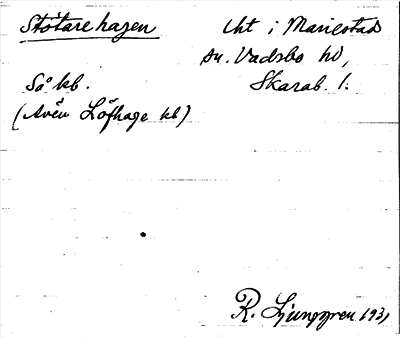 Stötarehagen
Lht i Mariestad
su. Vadsbo hd,
Skarab. l.
Så kb.
(Även Löfhage kb)
R. Ljunggren 1931